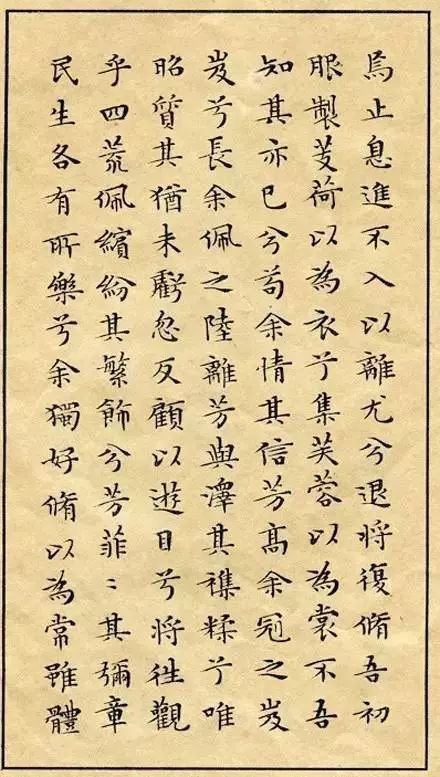 焉止息進不入以離尤兮退將復脩吾初
服製芰荷以為衣兮集芙蓉以為裳不吾
知其亦已兮苟余情其信芳高余冠之岌
岌兮長余佩之陸離芳與澤其襍糅兮唯
昭質其猶未虧忽反顧以遊目兮將往觀
乎四荒佩繽紛其繁飾兮芳菲〻其彌章
民生各有所樂兮余獨好脩以為常雖體